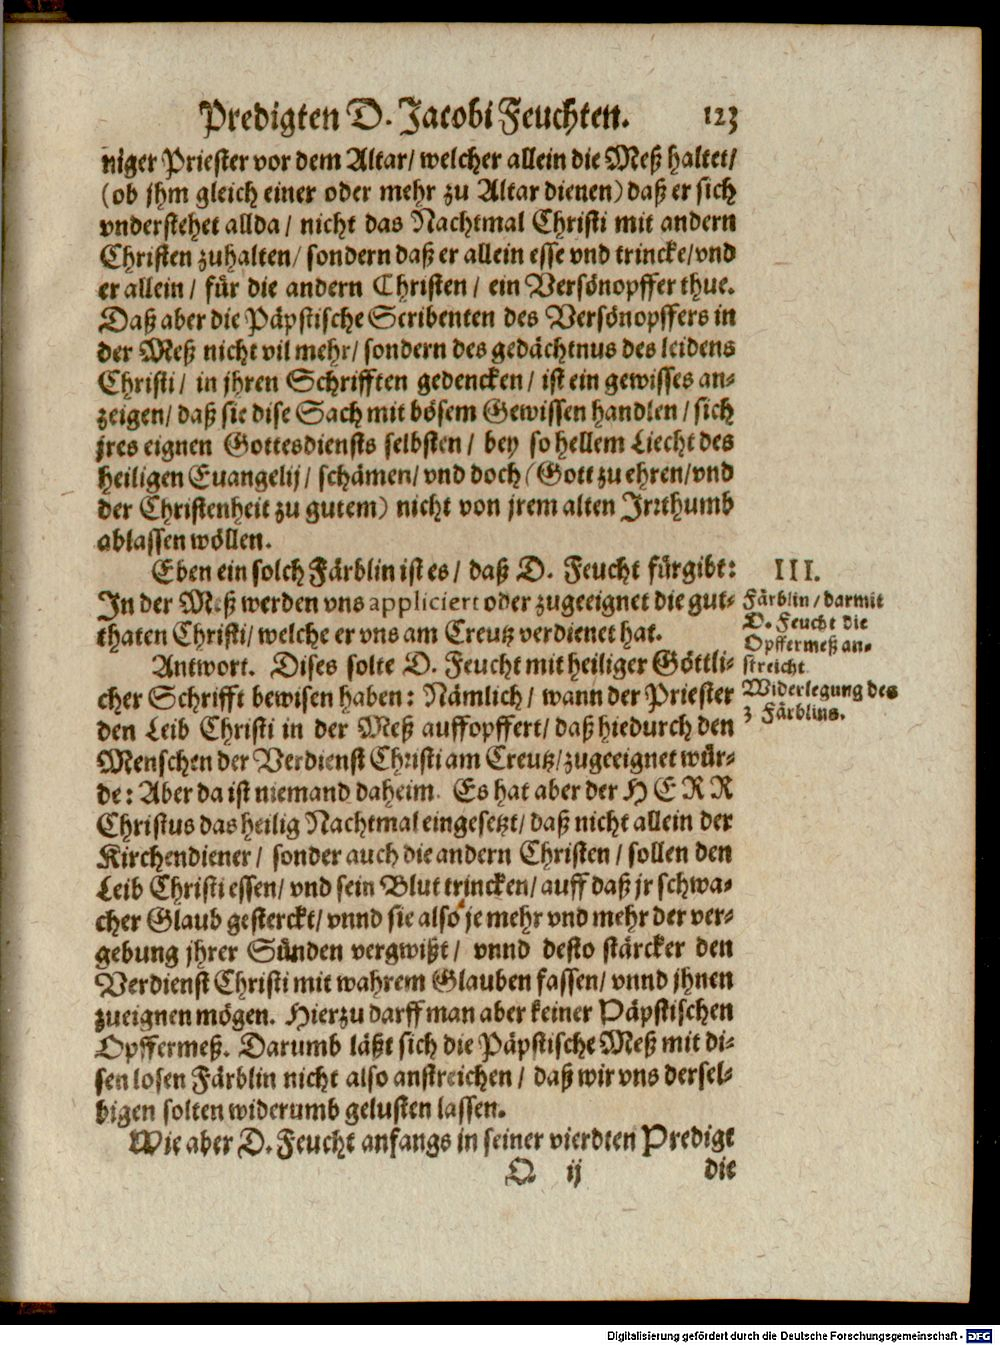 Predigten D. Jacobi Feuchten. 123
niger Priester vor dem Altar/ welcher allein die Meß haltet/
(ob jhm gleich einer oder mehr zu Altar dienen) daß er sich
vnderstehet allda/ nicht das Nachtmal Christi mit andern
Christen zuhalten/ sondern daß er allein esse vnd trincke/ vnd
er allein/ für die andern Christen/ ein Versönopffer thue.
Daß aber die Päpstische Scribenten des Versönopffers in
der Meß nicht vil mehr/ sondern des gedächtnus des leidens
Christi/ in jhren Schrifften gedencken/ ist ein gewisses an-
zeigen/ daß sie dise Sach mit bösem Gewissen handlen/ sich
jres eignen Gottesdiensts selbsten/ bey so hellem Liecht des
heiligen Euangelij/ schämen/ vnd doch (Gott zu ehren/ vnd
der Christenheit zu gutem) nicht von jrem alten Irrthumb
ablassen wöllen.
Eben ein solch Färblin ist es/ daß D. Feucht fürgibt:
In der Meß werden vns appliciert oder zugeeignet die gut-
thaten Christi/ welche er vns am Creutz verdienet hat.
III.
Färblin/ darmit
D. Feucht die
Opffermeß an-
streicht
Antwort. Dises solte D. Feucht mit heiliger Göttli-
cher Schrifft bewisen haben: Nämlich/ wann der Priester
den Leib Christi in der Meß auffopffert/ daß hiedurch den
Menschen der Verdienst Christi am Creutz/ zugeeignet wür-
de: Aber da ist niemand daheim. Es hat aber der HERR
Christus das heilig Nachtmal eingesetzt/ daß nicht allein der
Kirchendiener/ sonder auch die andern Christen/ sollen den
Leib Christi essen/ vnd sein Blut trincken/ auff daß jr schwa-
cher Glaub gesterckt/ vnnd sie also je mehr vnd mehr der ver-
gebung jhrer Sünden vergwißt/ vnnd desto stärcker den
Verdienst Christi mit wahrem Glauben fassen/ vnnd jhnen
zueignen mögen. Hierzu darff man aber keiner Päpstischen
Opffermeß. Darumb läßt sich die Päpstische Meß mit di-
sen losen Färblin nicht also anstreichen/ daß wir vns dersel-
bigen solten widerumb gelusten lassen.
Widerlegung des
3 Färblins.
Wie aber D. Feucht anfangs in seiner vierdten Predigt
Q ij die
Digitalisierung gefördert durch die Deutsche Forschungsgemeinschaft - DFG